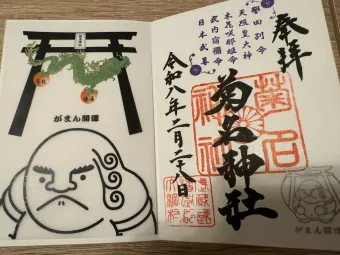 奉拝
誉田別命
天照皇大神
木花咲耶姫命
武内宿禰命
日本武尊
菊名神社
令和八年二月二十八日
菊名
神社
がまん開運
がまん開運